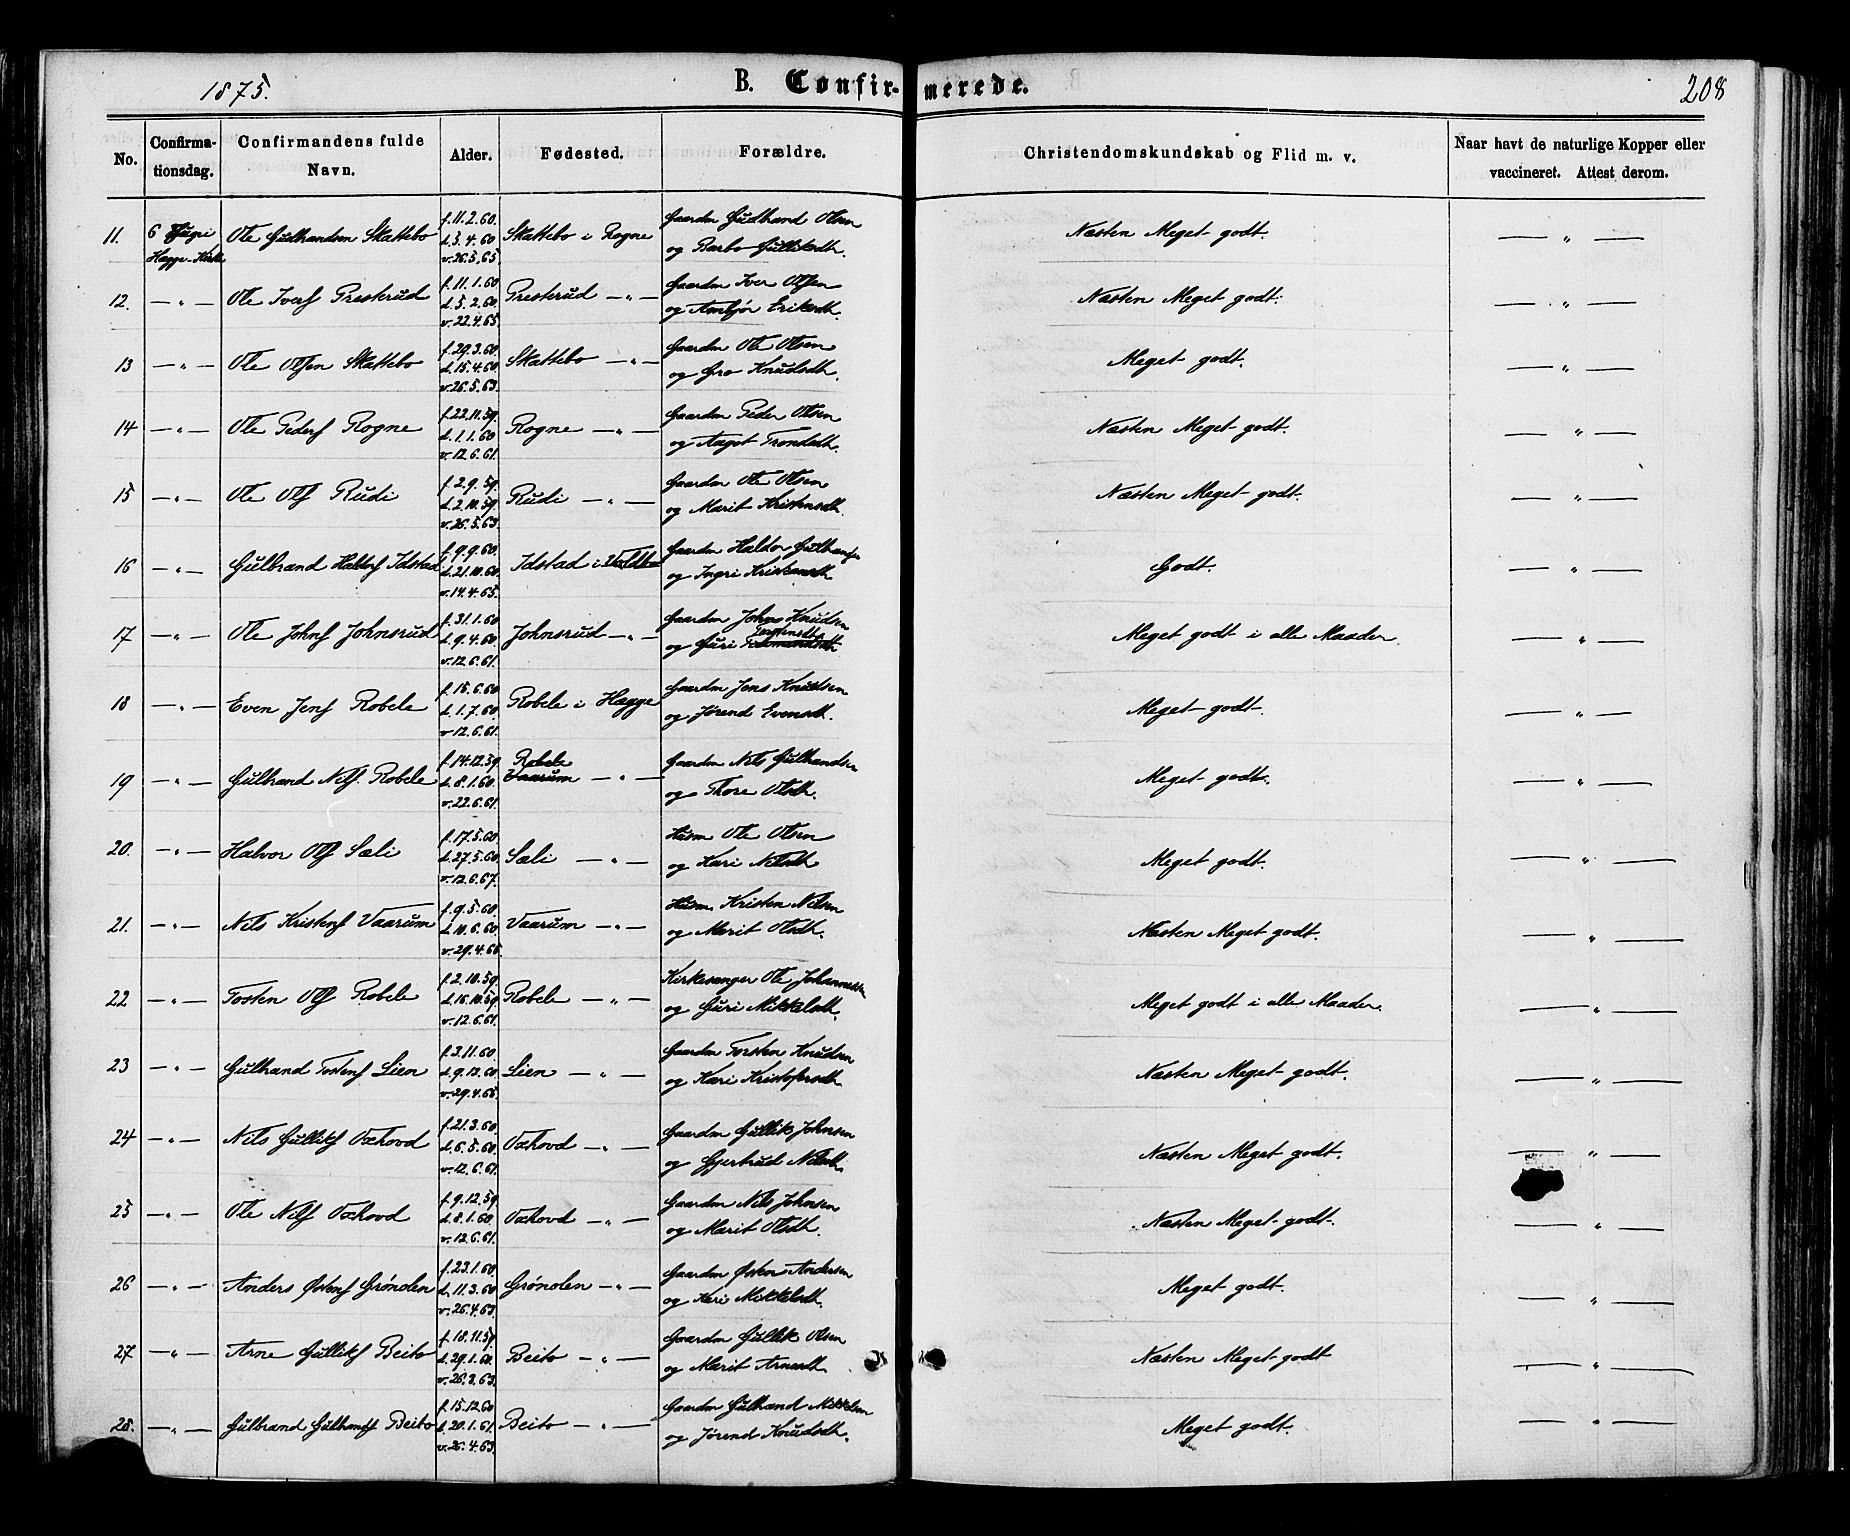 1875. B. Confirmerede. 208
No. Confirmationsdag. Confirmandens fulde Navn. Alder. Fødested. Forældre. Christendomskundskab og Flid m. v. Naar havt de naturlige Kopper eller vaccineret. Attest derom.
f. 11.2.60. Gaardm Gudbrand Olsen
11. 6 Juni Ole Gudbrandsen Skattebo d. 5.4.60 Skattebo i Rogne Næsten Meget godt. — " —
Hegge-Kirke v. 26.5.65. og Barbo Gulliksdtr.
f. 11.1.60 Gaardm Iver Olsen
12. — " — Ole Ivers Presterud d. 5.2.60. Presterud — " — Næsten Meget godt. — " —
v. 22.4.65. og Eriksdtr.
f. 29.3.60. Gaardm Ole Olsen
13 — " — Ole Olsen Skattebo d. 15.4.60 Skattebo — " — Meget godt. — " —
v. 26.5.63. og Gro Knudsdtr.
f. 22.11.59 Gaardm Peder Olsen
14 — " — Ole Peders Rogne d. 1.1.60 Rogne — " — Næsten Meget godt. — " —
v. 12.6.61. og Aagot Trondsdtr.
f. 2.9.59. Gaardm Ole Olsen
15 — " — Ole Ols Rudi d. 2.10.59 Rudi — " — Næsten Meget godt. — " —
v. 26.5.63. og Marit Kristensdtr.
f. 9.9.60. Gaardm Haldor Gulbrandsen
16 — " — Gulbrand Haldors Idstad d. 21.10.60. Idstad i Godt. — " —
v. 14.4.65. og Ingri Kristensdtr
f. 31.1.60 Gaardm Johns Knudsen
17 — " — Ole Johns Johnsrud d. 9.4.60 Johnsrud — " — Meget godt i alle Maader. — " —
v. 12.6.61. og Guri
f. 15.6.60 Gaardm Jens Knudsen
18 — " — Even Jens Robøle d. 1.7.60 Robøle i Hegge Meget godt. — " —
v. 12.6.61. og Jørend Evensdtr.
f. 14.12.59. Robøle Gaardm Nils Gulbrandsen
19 — " — Gulbrand Nils. Robøle d. 8.1.60. Vaarum — " — Meget godt. — " —
v. 22.6.61. og Thore Olsdtr.
f. 17.5.60. Husm Ole Olsen
20. — " — Halvor Ols Sæli d. 27.5.60. Sæli — " — Meget godt. — " —
v. 12.6.67. og Kari Nilsdtr
f. 9.5.60. Husm. Kristen Nilsen
21. — " — Nils Kristens Vaarum d. 10.6.60. Vaarum — " — Næsten Meget godt. — " —
v. 29.4.65. og Marit Olsdtr.
f. 2.10.59. Kirkesanger Ole Johannessen
22 — " — Tosten Ols Robøle d. 16.10.59 Robøle — " — Meget godt i alle Maader. — " —
v. 12.6.61. og Guri Mikkelsdtr.
f. 3.11.60. Gaardm Torsten Knudsen
23 — " — Gulbrand Tostens Lien d. 9.12.60 Lien — " — Næsten Meget godt. — " —
v. 29.4.65. og Kari Kristofersdtr
f. 21.3.60. Gaardm Gullik Johnsen
24 — " — Nils Gulliks Oxhovd d. 6.5.60. Oxhovd — " — Næsten Meget godt. — " —
v. 12.6.61. og Gjertrud Nilsdtr.
f. 9.12.59 Gaardm Nils Johnsen
25 — " — Ole Nils Oxhovd d. 8.1.60. Oxhovd — " — Næsten Meget godt. — " —
v. 12.6.61. og Marit Olsdtr.
f. 23.1.60. Gaardm Østen Andersen
26 — " — Anders Østens Grønolen d. 11.3.60 Grønolen — " — Meget godt. — " —
v. 26.4.63. og Kari Mikkelsdtr.
f. 18.11.59. Gaardm Gullik Olsen
27 — " — Arne Gulliks Beito d. 29.1.60. Beito — " — Næsten Meget godt — " —
v. 26.3.63. og Marit Arnesdtr
f. 15.12.60 Gaardm Gulbrand Mikkelsen
28. — " — Gulbrand Gulbrands Beito d. 20.1.61. Beito — " — Meget godt. — " —
v. 26.4.63. og Jørend Knudsdtr.